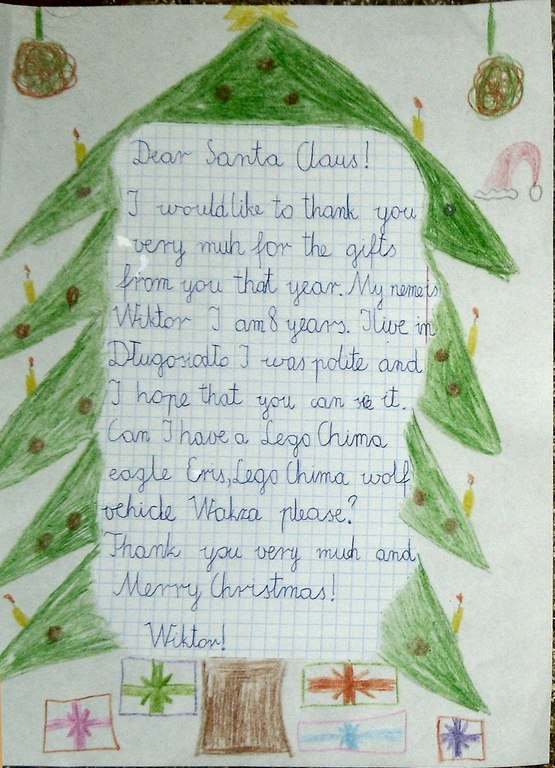 Dear Santa Claus!
I would like to thank you
very muh for the gifts
from you that year. My nemeis
Wiktor I am 8 years. I live in
Długosiodło I was polite and
I hope that you can se it.
Can I have a Lego Chima
eagle Eris, Lego Chima wolf
vehicle Wakza please?
Thank you very muh and
Merry Christmas!
Wiktor!